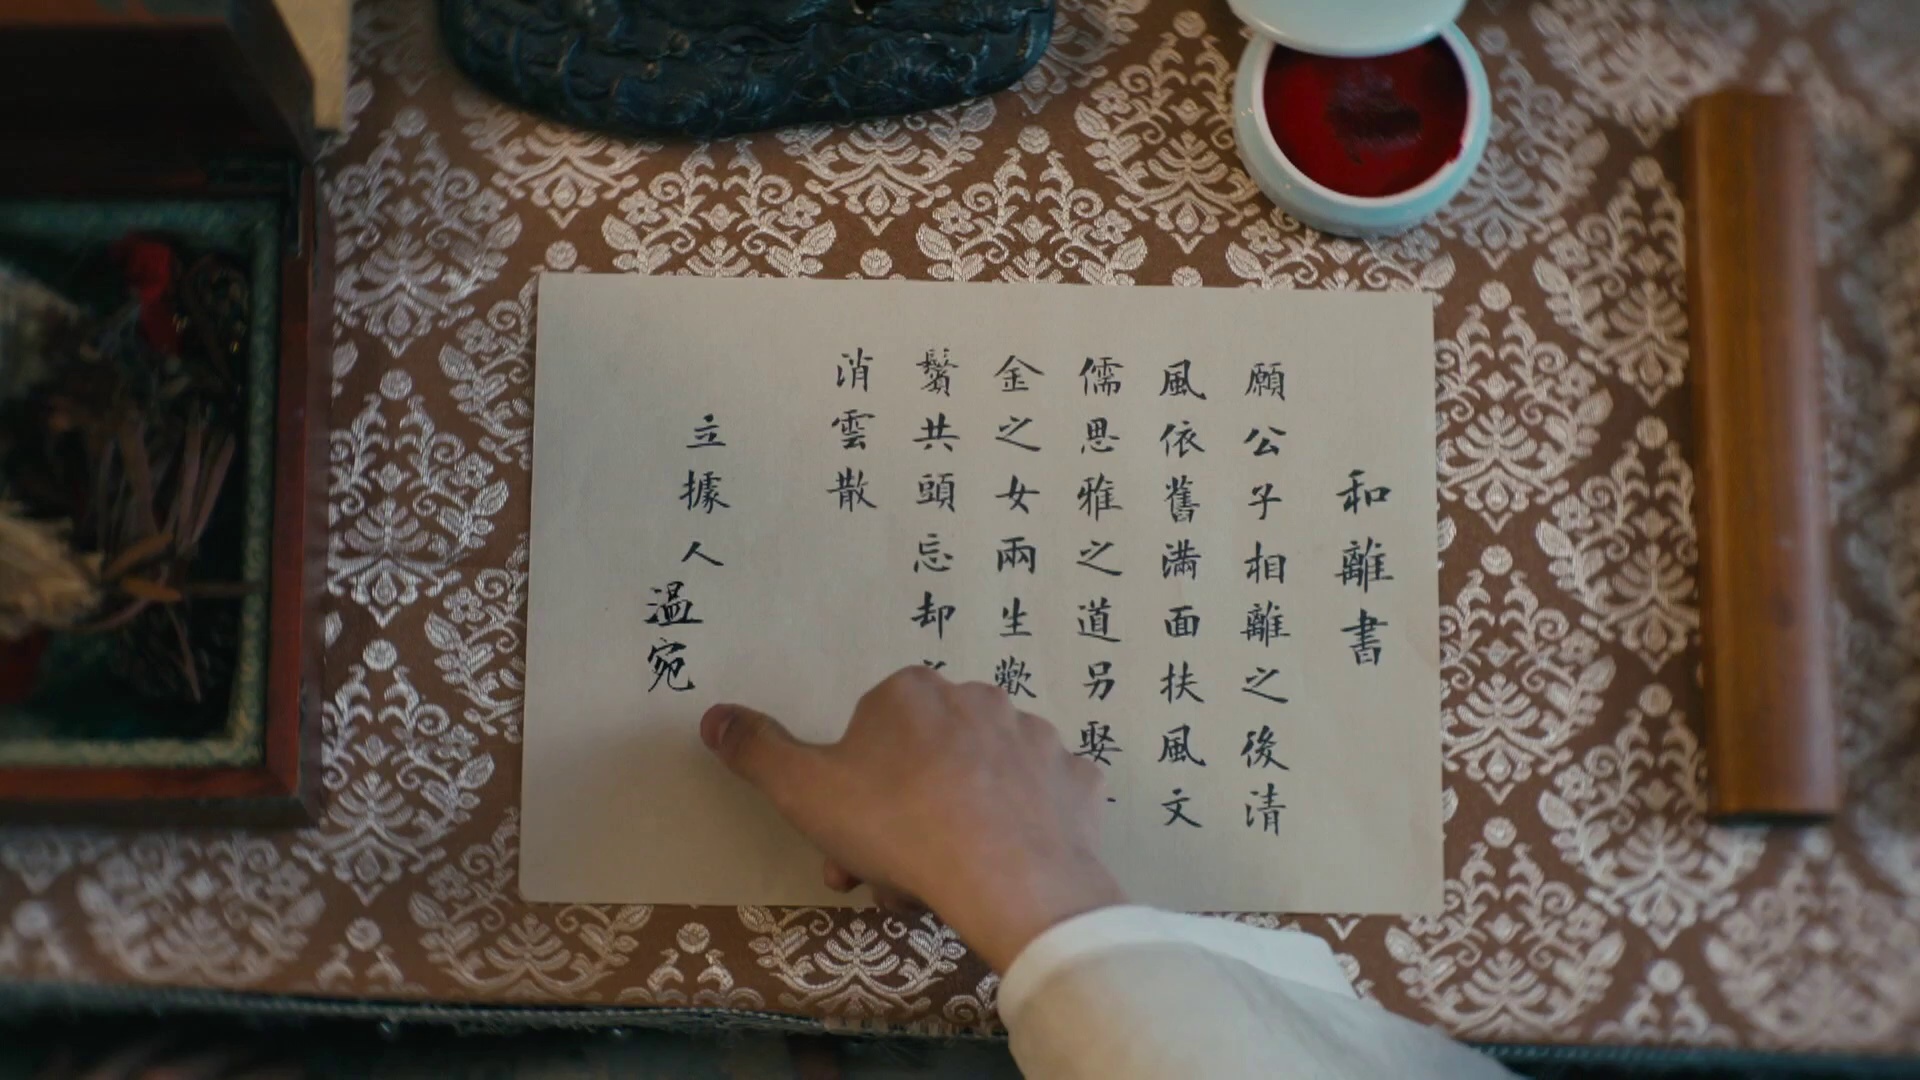 和離書
願公子相離之後清
風依舊滿面扶風文
儒思雅之道另娶
金之女兩生歡
鬢共頭忘却
消雲散
立據人
溫宛